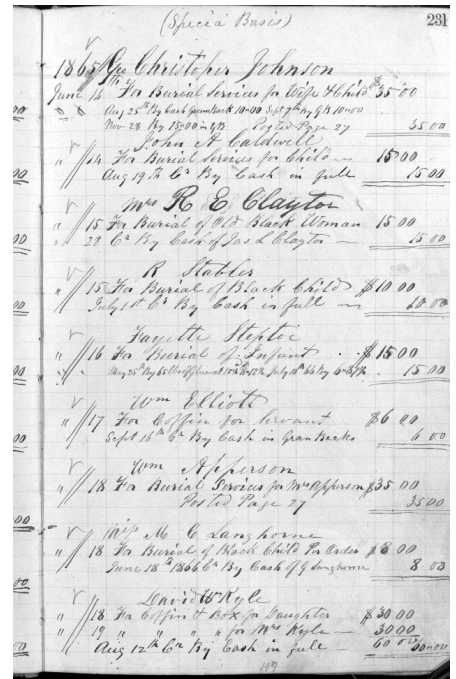 (Specia Basis) 231
1865 Geo Christopher Johnson
June 14th For Burial Services for Wife & Child $35 00
Aug 25th By Cash Greenback 10=00 Sept 7th By GB 10=00
Nov 28 By 15=00 in GB Posted Page 27 35 00
John A Caldwell
" 14 For Burial Services for Child 15 00
Aug 19th Cr By Cash in full 15 00
Mrs R E Clayton
" 15 For Burial of Old Black Woman 15 00
28 Cr By Cash of Jas L Clayton 15 00
R Stabler
" 15 For Burial of Black Child $10 00
July 1st Cr By Cash in full 10 00
Fayette Steptoe
" 16 For Burial of Infant $15 00
May 25th By 65 lbs July 15 00
Wm Elliott
" 17 For Coffin for Servant $6 00
Sept 16th Cr By Cash in Gran Backs 6 00
Wm Apperson
" 18 For Burial Services for Mrs Apperson $35 00
Posted Page 27 35 00
Miss M C Langhorne
" 18 For Burial of Black Child Per Order $8 00
June 18th 1866 Cr By Cash of G Langhorne 8 00
David W Kyle
" 18 For Coffin & Box for Daughter $30 00
" 19 " " " " for Mrs Kyle 30 00
Aug 12th Cr By Cash in full 60 00 60 00